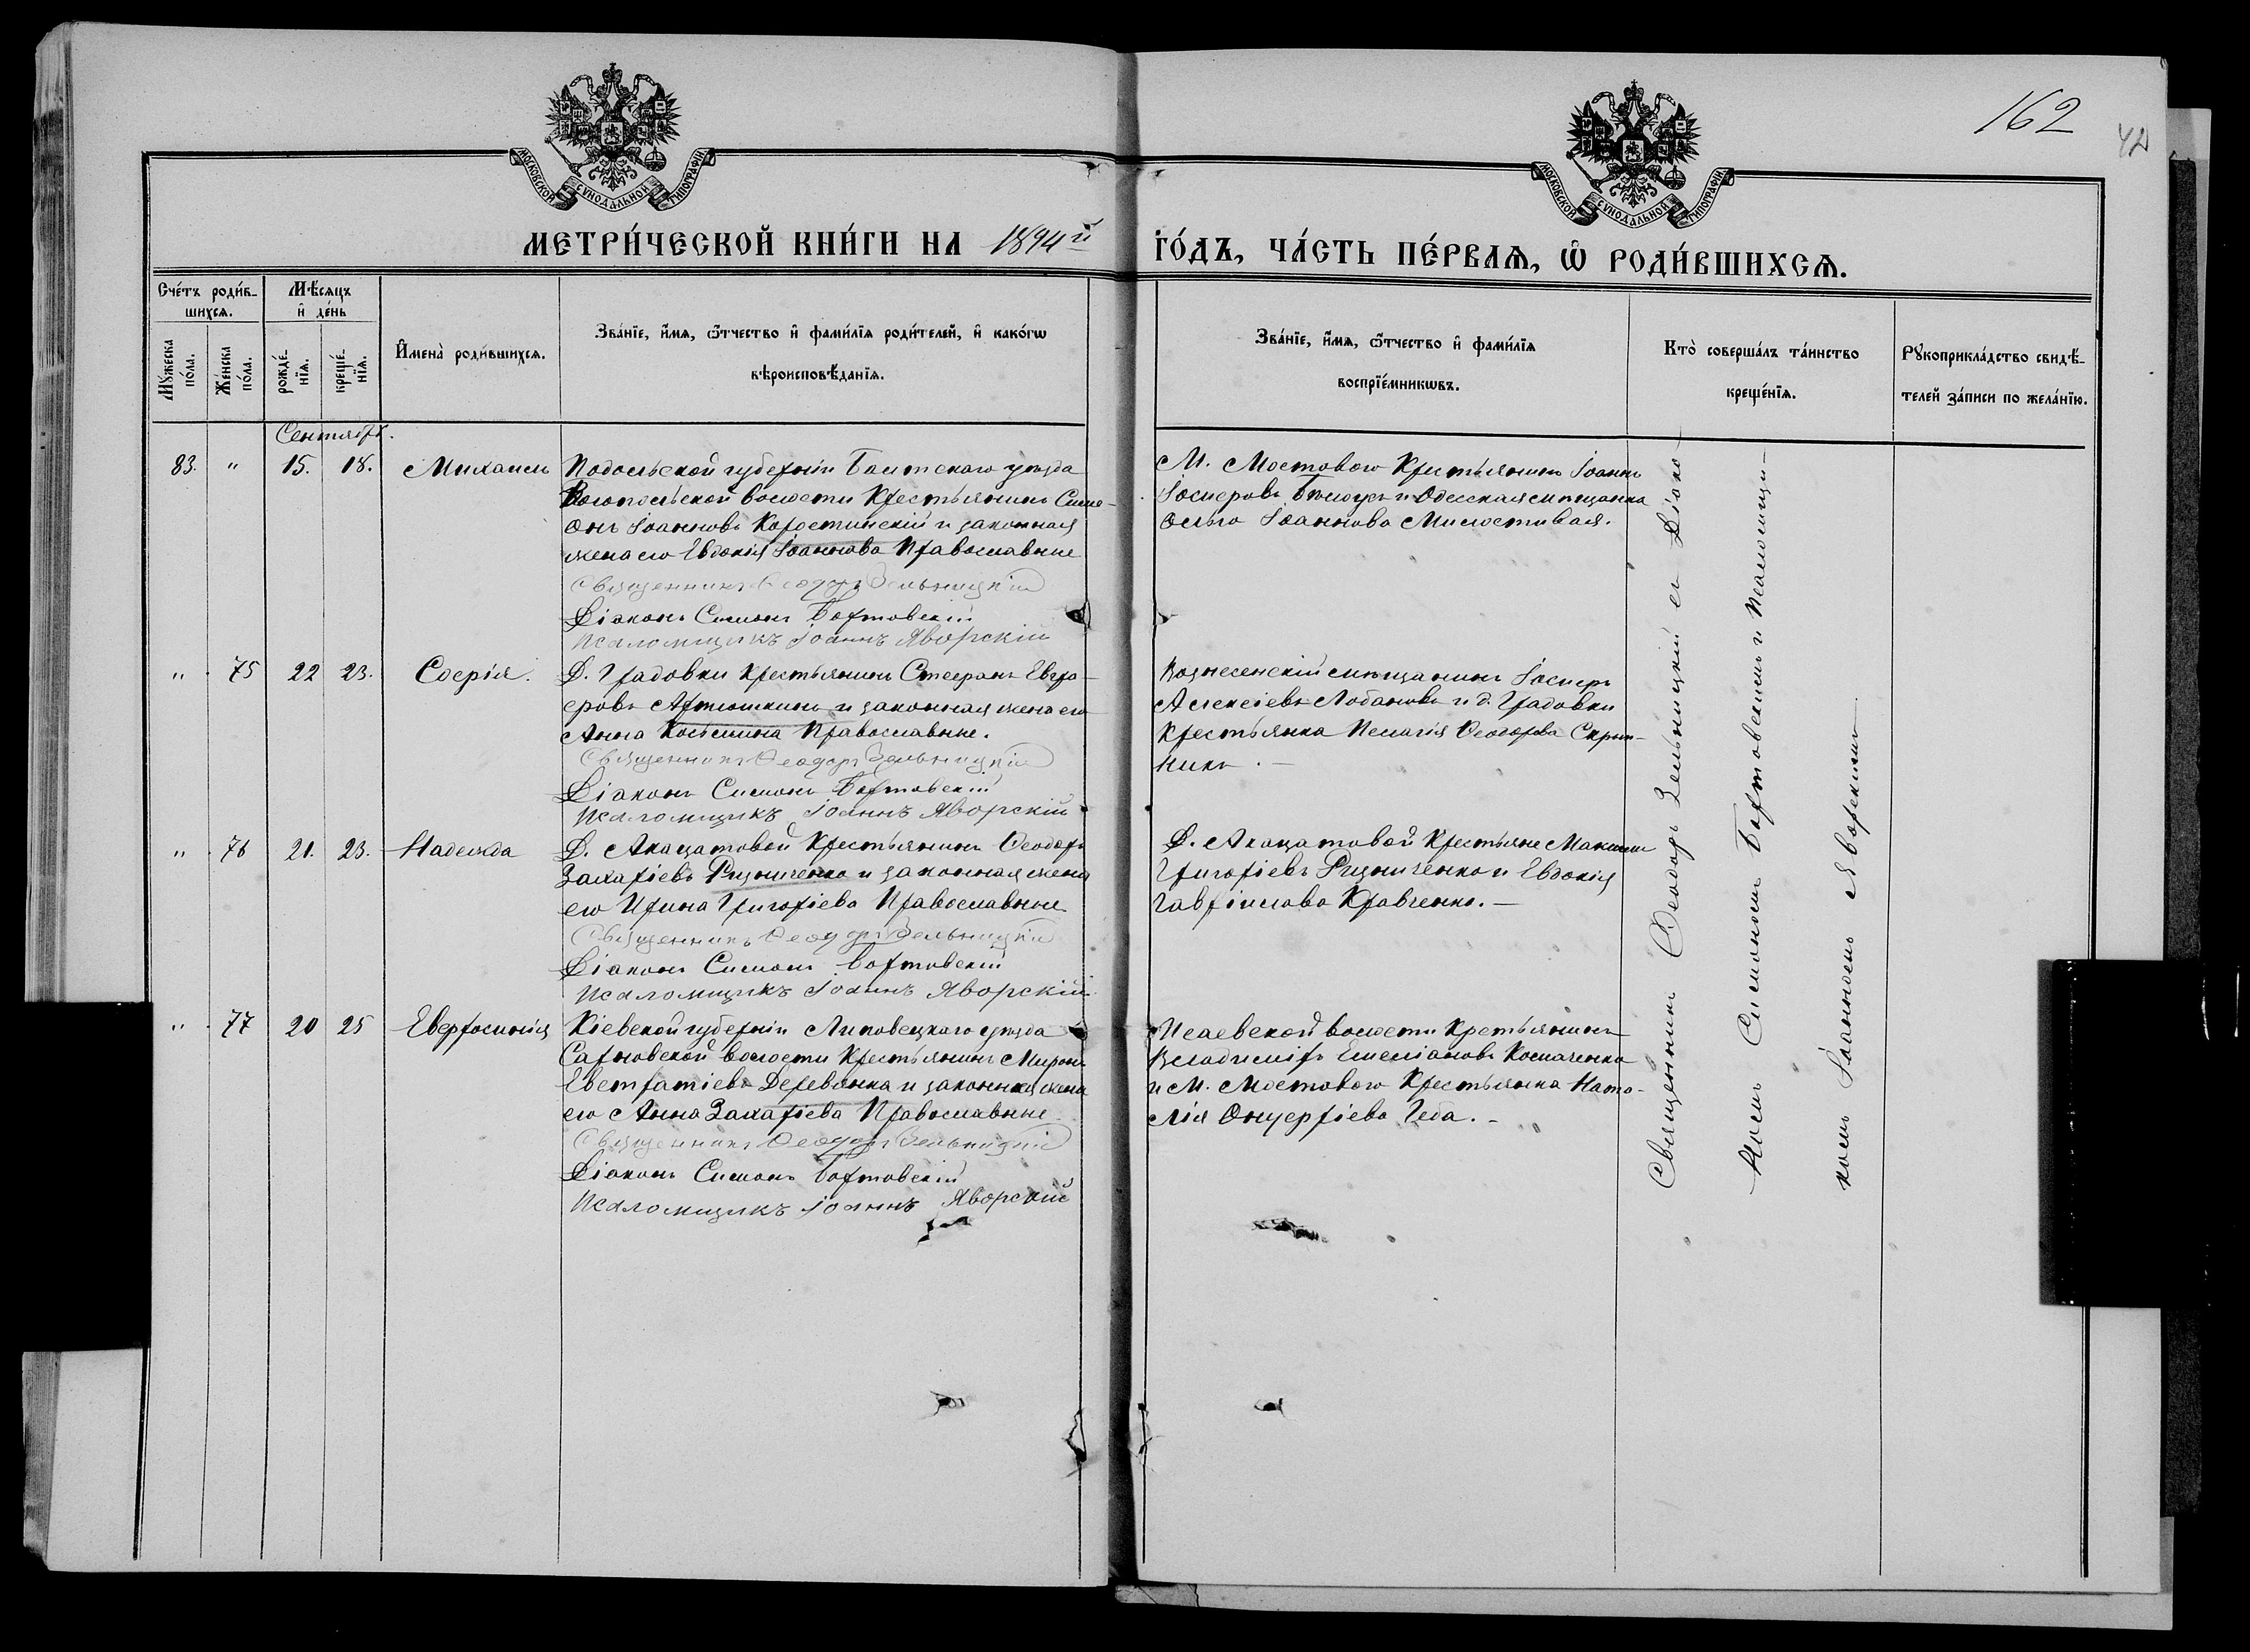 162
42
МОСКОВСКОЙ СѴНОДАЛЬНОЙ ТИПОГРАФІИ
МОСКОВСКОЙ СѴНОДАЛЬНОЙ ТИПОГРАФІИ
МЕТРИ́ЧЕСКОЙ КНИ́ГИ НА 1894й ГО́ДЪ, ЧА́СТЬ ПЕ́РВАѦ, Ѡ҆ РОДИ́ВШИХСѦ.
Сче́тъ роди́в-
шихсѧ.
Мѣ́сѧцъ
и҆ де́нь
Мꙋ́жеска
по́ла.
Же́нска
по́ла.
рожде́-
нїѧ.
креще́-
нїѧ.
И҆мена̀ роди́вшихсѧ.
Зва́нїе, и҆́мѧ, ѻ҆́тчество и҆ фами́лїѧ роди́телей, и҆ како́гѡ
вѣроисповѣ́данїѧ.
Зва́нїе, и҆́мѧ, ѻ҆́тчество и҆ фами́лїѧ
воспрїе́мникѡвъ.
Кто̀ соверша́лъ та́инство
креще́нїѧ.
Рꙋкоприкла́дство свидѣ́-
телей за́писи по жела́нїю.
Сентябрь.
83. " 15. 18. Михаилъ
Подольской губерніи Балтскаго уѣзда
волости Крестьянинъ Симе-
онъ Іоанновъ Коростинскій и законная
жена его Евдокія Іоаннова Православные
Священникъ Ѳеодоръ Зельницкій
Діаконъ Симонъ Бортовскій
Псаломщикъ Іоаннъ Яворскій
М. Мостового Крестьянинъ Іоаннъ
Іосифовъ Бѣлоусъ и Одесская мѣщанка
Ольга Іоаннова Милостивая.
" 75 22 23. Софія.
Д. Градовки Крестьянинъ Стефанъ Евгра-
фовъ Артюшкинъ и законная жена его
Анна Козьмина Православные.
Священникъ Ѳеодоръ Зельницкій
Діаконъ Симонъ Бортовскій
Псаломщикъ Іоаннъ Яворскій
Вознесенскій мѣщанинъ Іосифъ
Алексіевъ Лобановъ и д. Градовки
Крестьянка Пелагія Ѳеодорова Скрып-
никъ.
" 76 21. 23. Надежда
Д. Акацатовой Крестьянинъ Ѳеодоръ
Захаріевъ Рѣзниченко и законная жена
его Ирина Григоріева Православные
Священникъ Ѳеодоръ Зельницкій
Діаконъ Симонъ Бортовскій
Псаломщикъ Іоаннъ Яворскій
Д. Акацатовой Крестьяне Максимъ
Григоріевъ Рѣзниченко и Евдокія
Гавріилова Кравченко.
" 77 20 25 Евфросинія
Кіевской губерніи Липовецкаго уѣзда
волости Крестьянинъ Миронъ
Евстратіевъ Деревянка и законная жена
его Анна Захаріева Православные
Священникъ Ѳеодоръ Зельницкій
Діаконъ Симонъ Бортовскій
Псаломщикъ Іоаннъ Яворскій
Исаевской волости Кретьянинъ
Владиміръ Емеліановъ Космаченко
и М. Мостового Крестьянка Ната-
лія Онуфріева Геба.
Священникъ Ѳеодоръ Зельницкій съ Діако-
номъ Симономъ Бортовскимъ и Псаломщи-
комъ Іоанномъ Яворскимъ